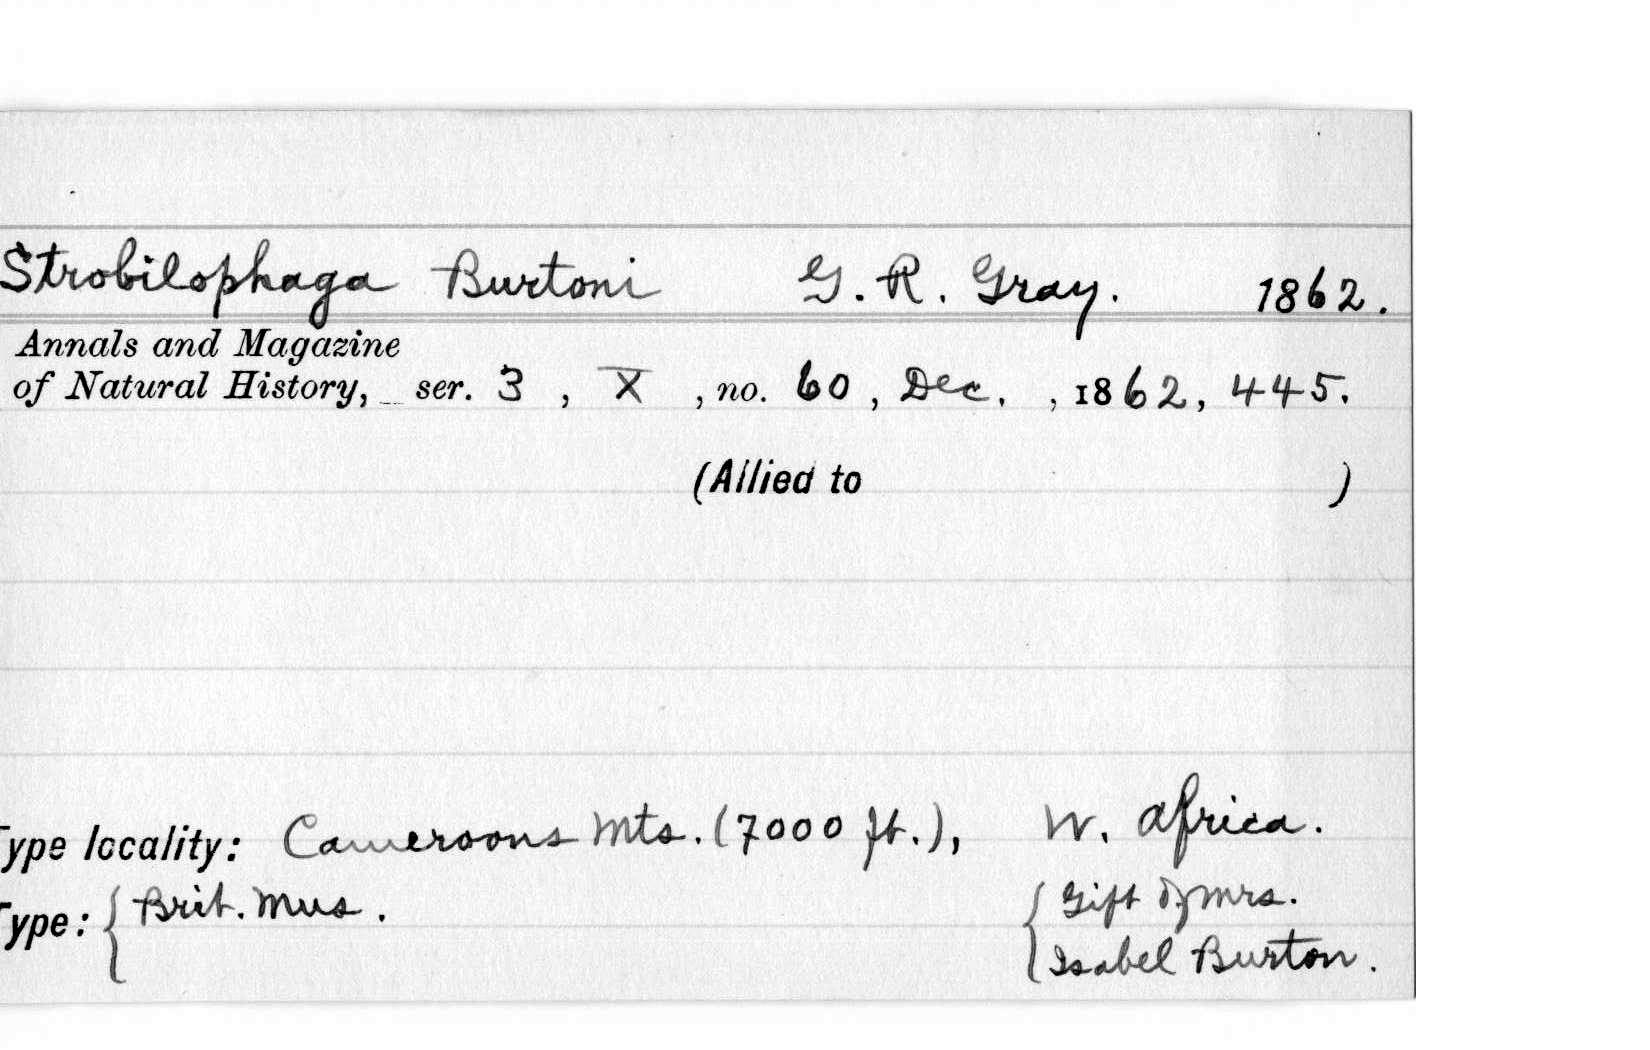 Strobilophaga Burtoni G. R. Gray. 1862.
Annals and Magazine
of Natural History, ser. 3, X, no. 60, Dec., 1862, 445.
(Allied to )
Type locality: Cameroons Mts. (7000 ft.), W. Africa.
Type: { Brit. Mus. { Gift of Mrs.
Isabel Burton.